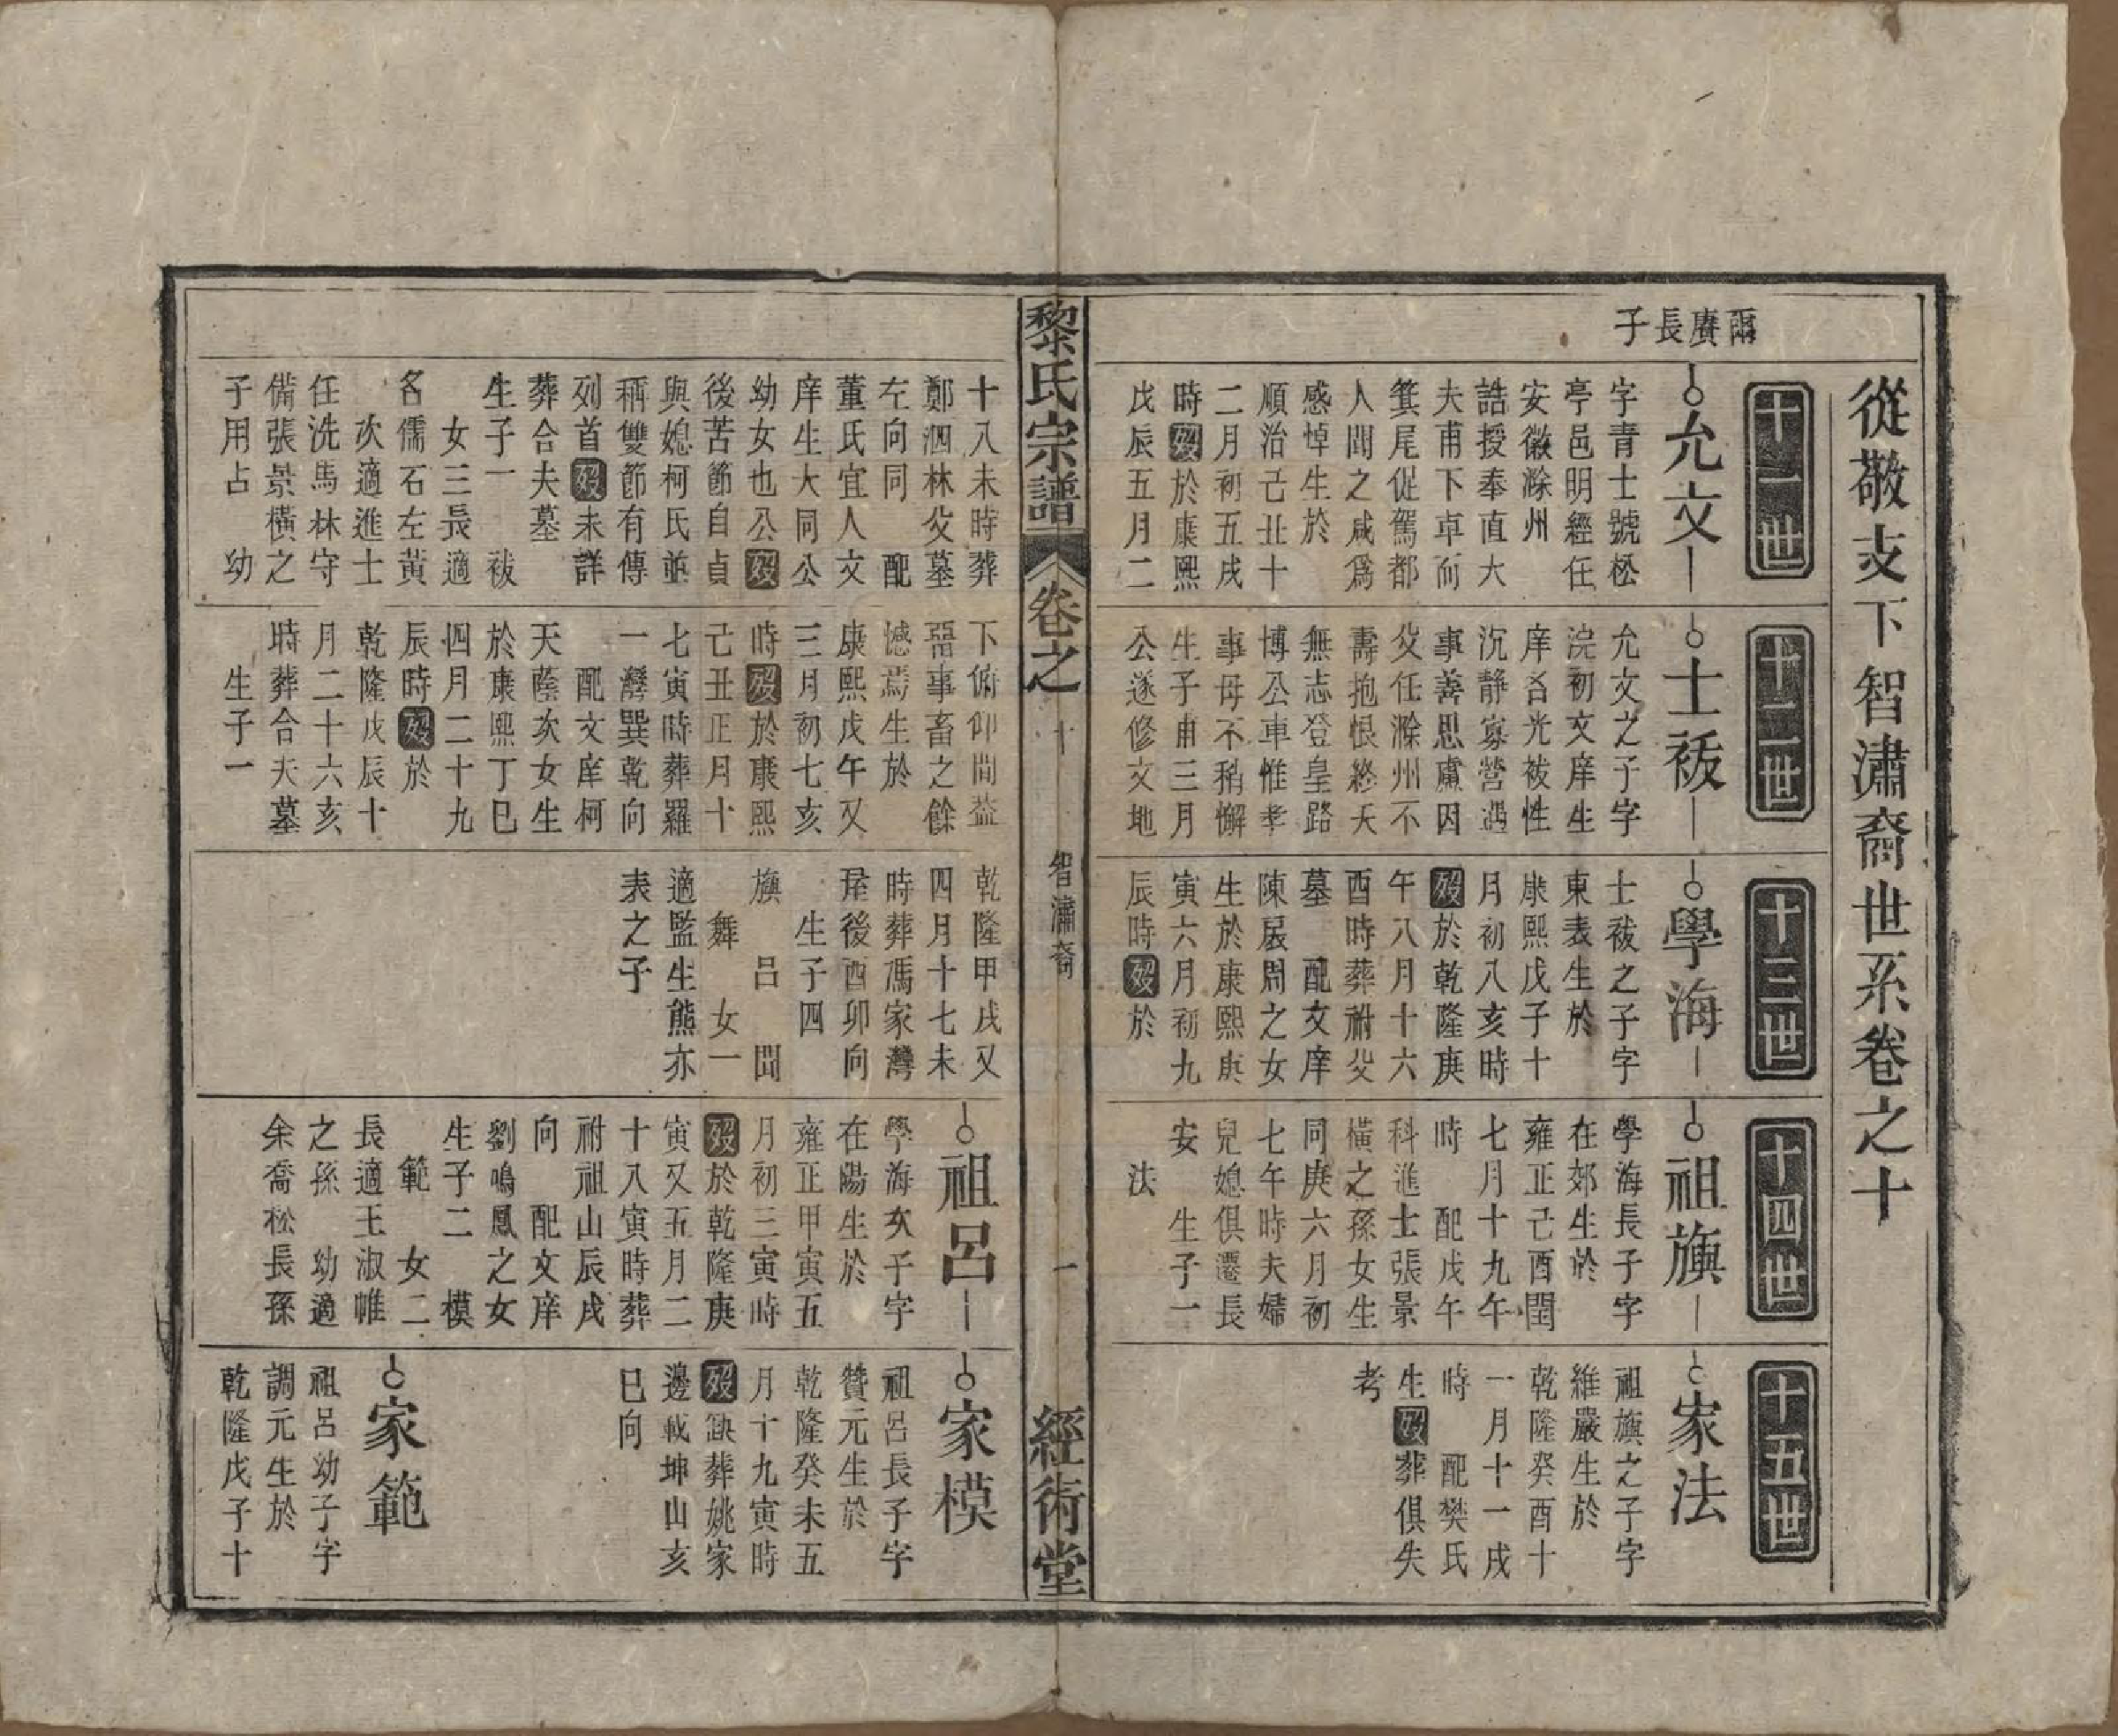 從敬支下智潚裔世系卷之十
爾賡長子
十一世
允文
字青士號松
亭邑明經任
安徽滁州
誥授奉直大
夫甫下車而
箕尾促駕都
人聞之咸爲
感悼生於
順治己丑十
二月初五戌
時歿於康熙
戊辰五月二
十二世
士袚
允文之子字
浣初文庠生
庠名光袚性
沉靜寡營遇
事善思慮因
父任滁州不
壽抱恨終天
無志登皇路
博公車惟孝
事母不稍懈
生子甫三月
公遂修文地
十三世
學海
士袚之子字
東表生於
康熙戊子十
月初八亥時
歿於乾隆庚
午八月十六
酉時葬祔父
墓　配文庠
陳展周之女
生於康熙庚
寅六月初九
辰時歿於
十四世
祖旟
學海長子字
在郊生於
雍正己酉閏
七月十九午
時　配戊午
科進士張景
橫之孫女生
同庚六月初
七午時夫婦
兒媳俱遷長
安　生子一
法
十五世
家法
祖旟之子字
維嚴生於
乾隆癸酉十
一月十一戌
時　配樊氏
生歿葬俱失
考
黎氏宗譜
卷之十
智潚裔
一
經術堂
十八未時葬
鄭泗林父墓
左向同　配
董氏宜人文
庠生大同公
幼女也公歿
後苦節自貞
與媳柯氏並
稱雙節有傳
列首歿未詳
葬合夫墓
生子一　袚
女三長適
名儒石左黃
次適進士
任洗馬林守
備張景橫之
子用占　幼
下俯仰間益
畱事畜之餘
憾焉生於
康熙戊午又
三月初七亥
時歿於康熙
己丑正月十
七寅時葬羅
一灣巽乾向
配文庠柯
天蔭次女生
於康熙丁巳
四月二十九
辰時歿於
乾隆戊辰十
月二十六亥
時葬合夫墓
生子一
乾隆甲戌又
四月十七未
時葬馮家灣
屋後酉卯向
生子四
旟　呂　聞
舞　女一
適監生熊亦
表之子
祖呂
學海次子字
在陽生於
雍正甲寅五
月初三寅時
歿於乾隆庚
寅又五月二
十八寅時葬
祔祖山辰戌
向　配文庠
劉鳴鳳之女
生子二　模
範　女二
長適王淑帷
之孫　幼適
余喬松長孫
家模
祖呂長子字
贊元生於
乾隆癸未五
月十九寅時
歿缺葬姚家
邊載坤山亥
巳向
家範
祖呂幼子字
調元生於
乾隆戊子十